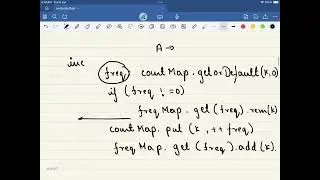 A →
inc
freq countMap.getorDefault(K,0)
if (freq != 0)
freqMap.get(freq).rem(k)
countMap.put (K, ++freq)
freqMap.get (freq).add(K).